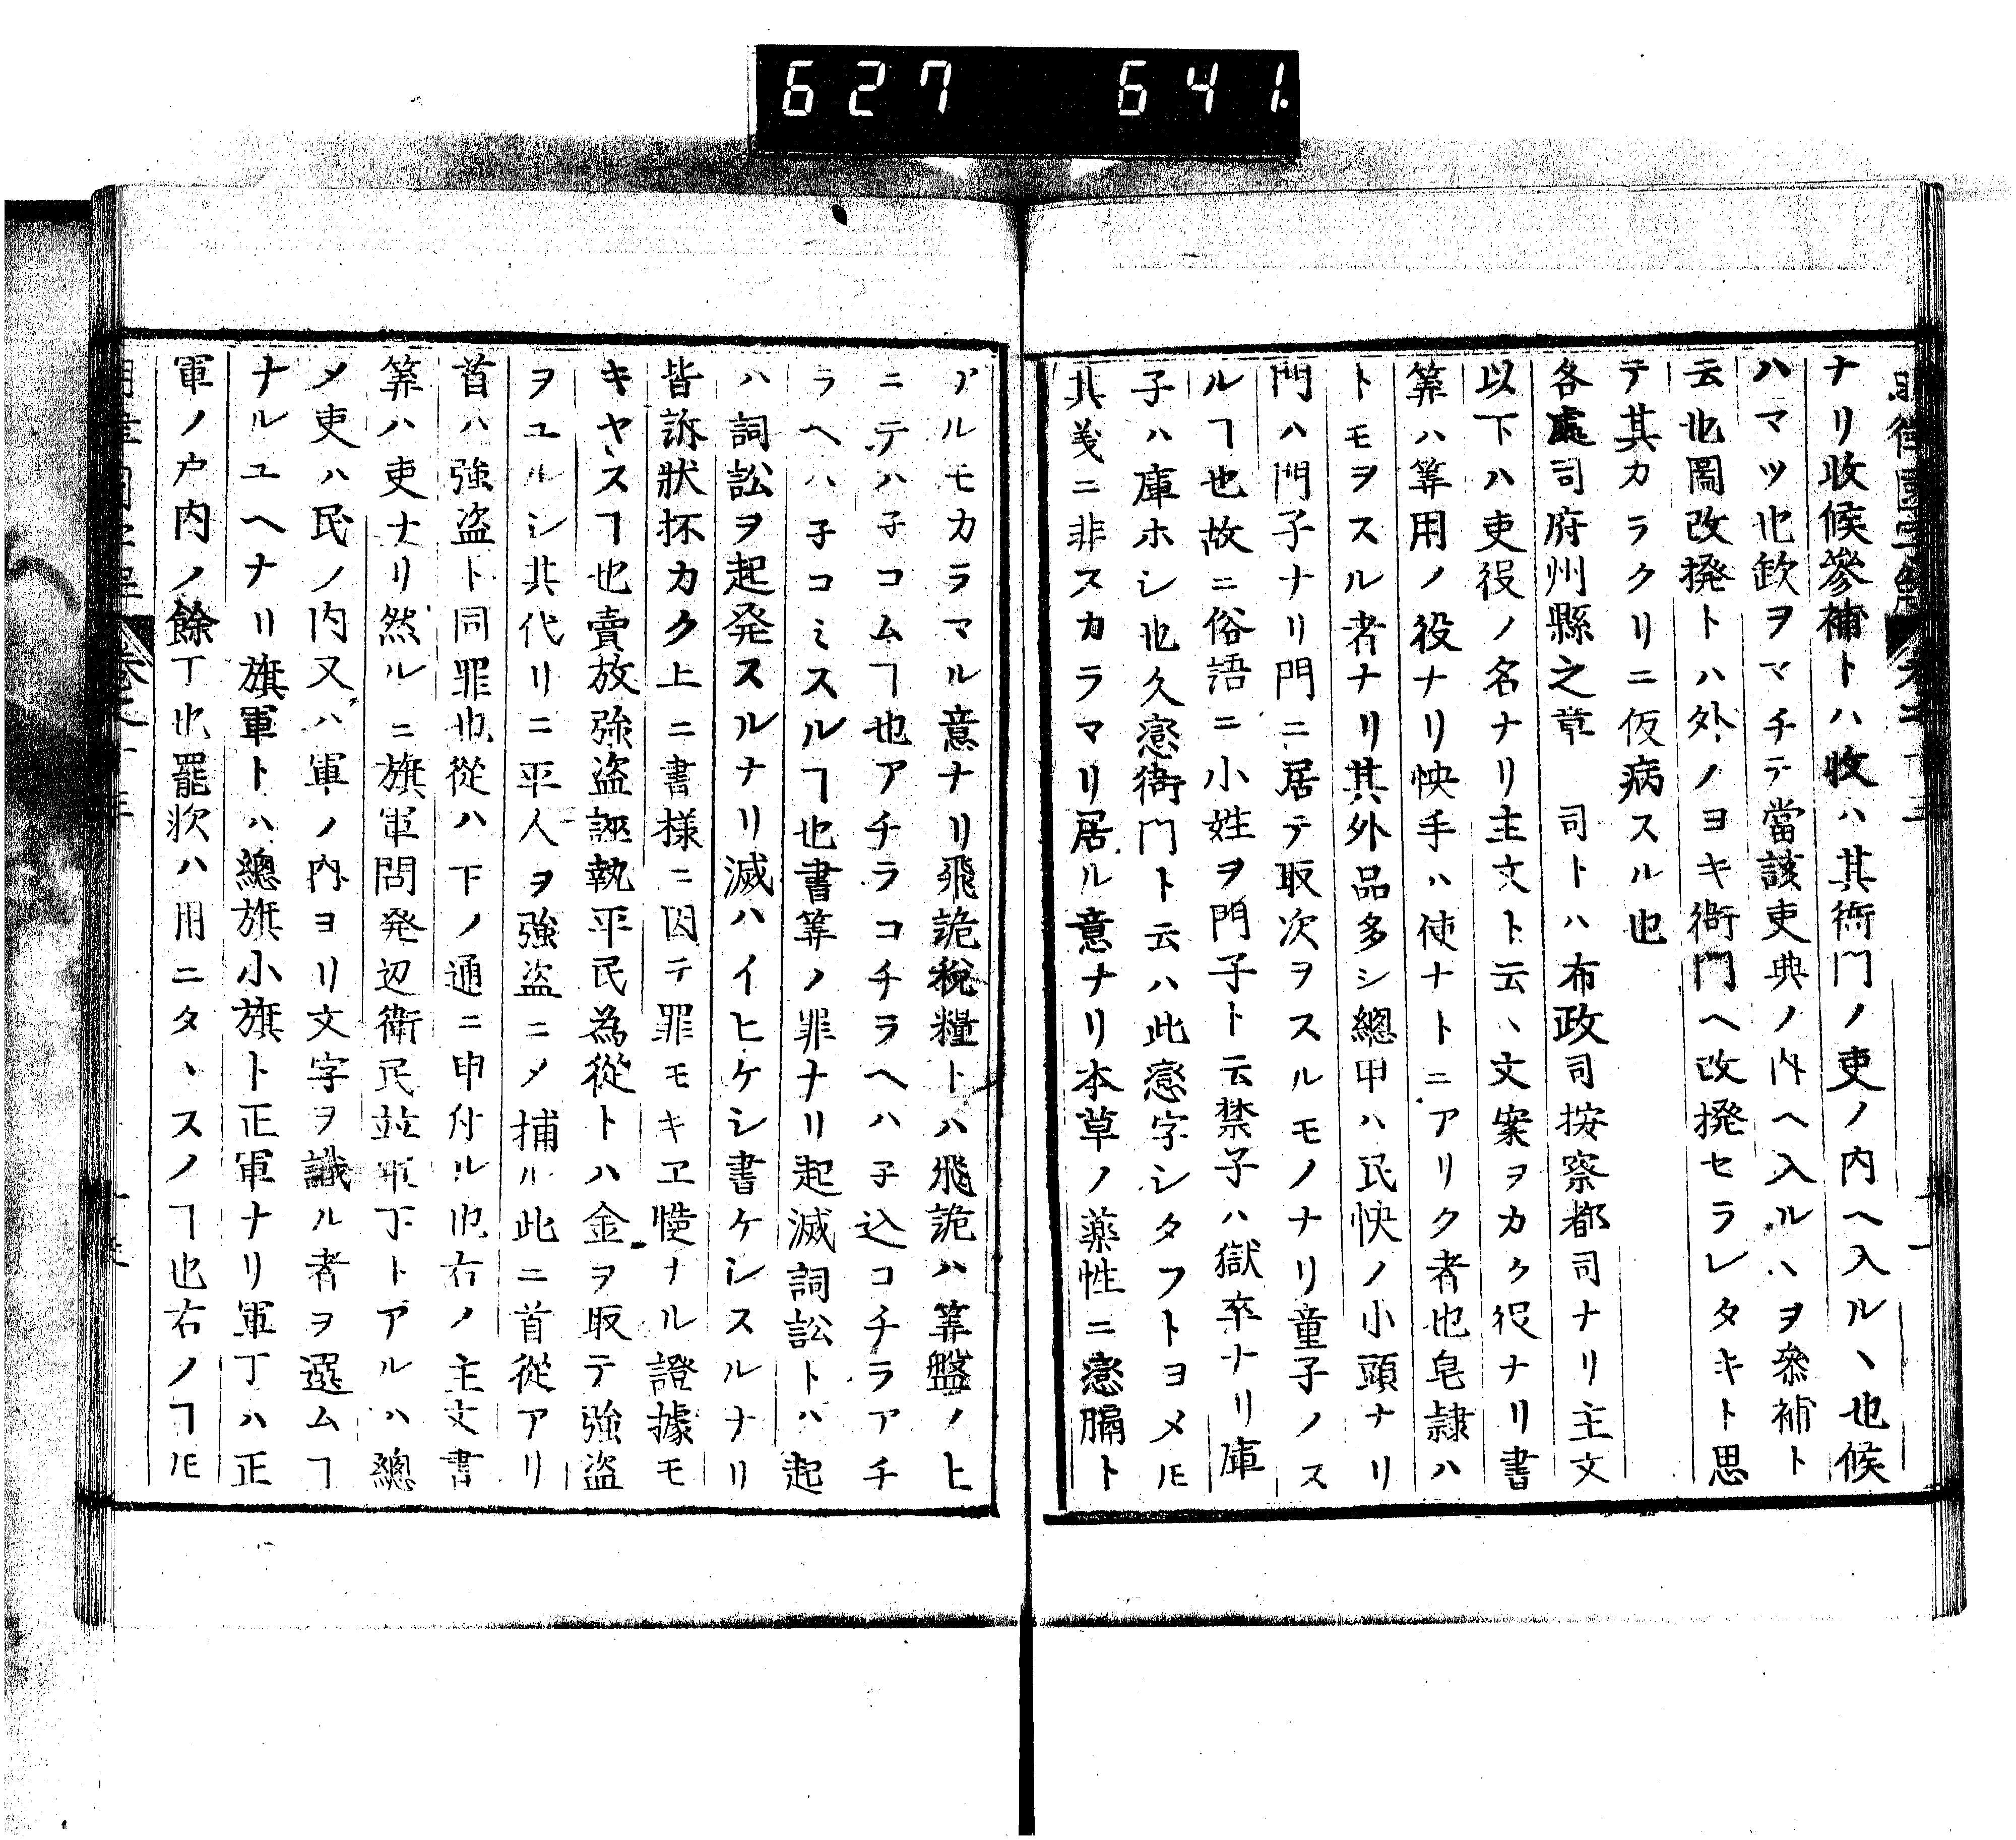 627 641
ナリ收候參補トハ收ハ其衙門ノ吏ノ内ヘ入ルヽ也候
ハマツ也欽ヲマチテ當該吏典ノ内ヘ入ルハヲ參補ト
云也圖改撥トハ外ノヨキ衙門ヘ改撥セラレタキト思
テ其カラクリニ仮病スル也
各處司府州縣之章　司トハ布政司按察都司ナリ主文
以下ハ吏役ノ名ナリ主文ト云ハ文案ヲカク役ナリ書
筭ハ筭用ノ役ナリ怏手ハ使ナトニアリク者也皂隷ハ
トモヲスル者ナリ其外品多シ總甲ハ民怏ノ小頭ナリ
門ハ門子ナリ門ニ居テ取次ヲスルモノナリ童子ノス
ルヿ也故ニ俗語ニ小姓ヲ門子ト云禁子ハ獄卒ナリ庫
子ハ庫ホシ也久戀衙門ト云ハ此戀字シタフトヨメ𪜈
其義ニ非スカラマリ居ル意ナリ本草ノ薬性ニ戀膈ト
アルモカラマル意ナリ飛詭税糧トハ飛詭ハ筭盤ノヒ
ニテハ子コムヿ也アチラコチラヘハ子込コチラアチ
ラヘハ子コミスルヿ也書筭ノ罪ナリ起滅詞訟トハ起
ハ詞訟ヲ起発スルナリ滅ハイヒケシ書ケシスルナリ
皆訴狀抔カク上ニ書様ニ因テ罪モキヱ慥ナル證據モ
キヤスヿ也賣放強盗誣執平民為從トハ金ヲ取テ強盗
ヲユルシ其代リニ平人ヲ強盗ニメ捕ル此ニ首從アリ
首ハ強盗ト同罪也從ハ下ノ通ニ申付ル也右ノ主文書
筭ハ吏ナリ然ルニ旗軍問発辺衛民並軍下トアルハ總
メ吏ハ民ノ内又ハ軍ノ内ヨリ文字ヲ識ル者ヲ選ムヿ
ナルユヘナリ旗軍トハ總旗小旗ト正軍ナリ軍丁ハ正
軍ノ户内ノ餘丁也罷㳄ハ用ニタヽスノヿ也右ノヿ𪜈